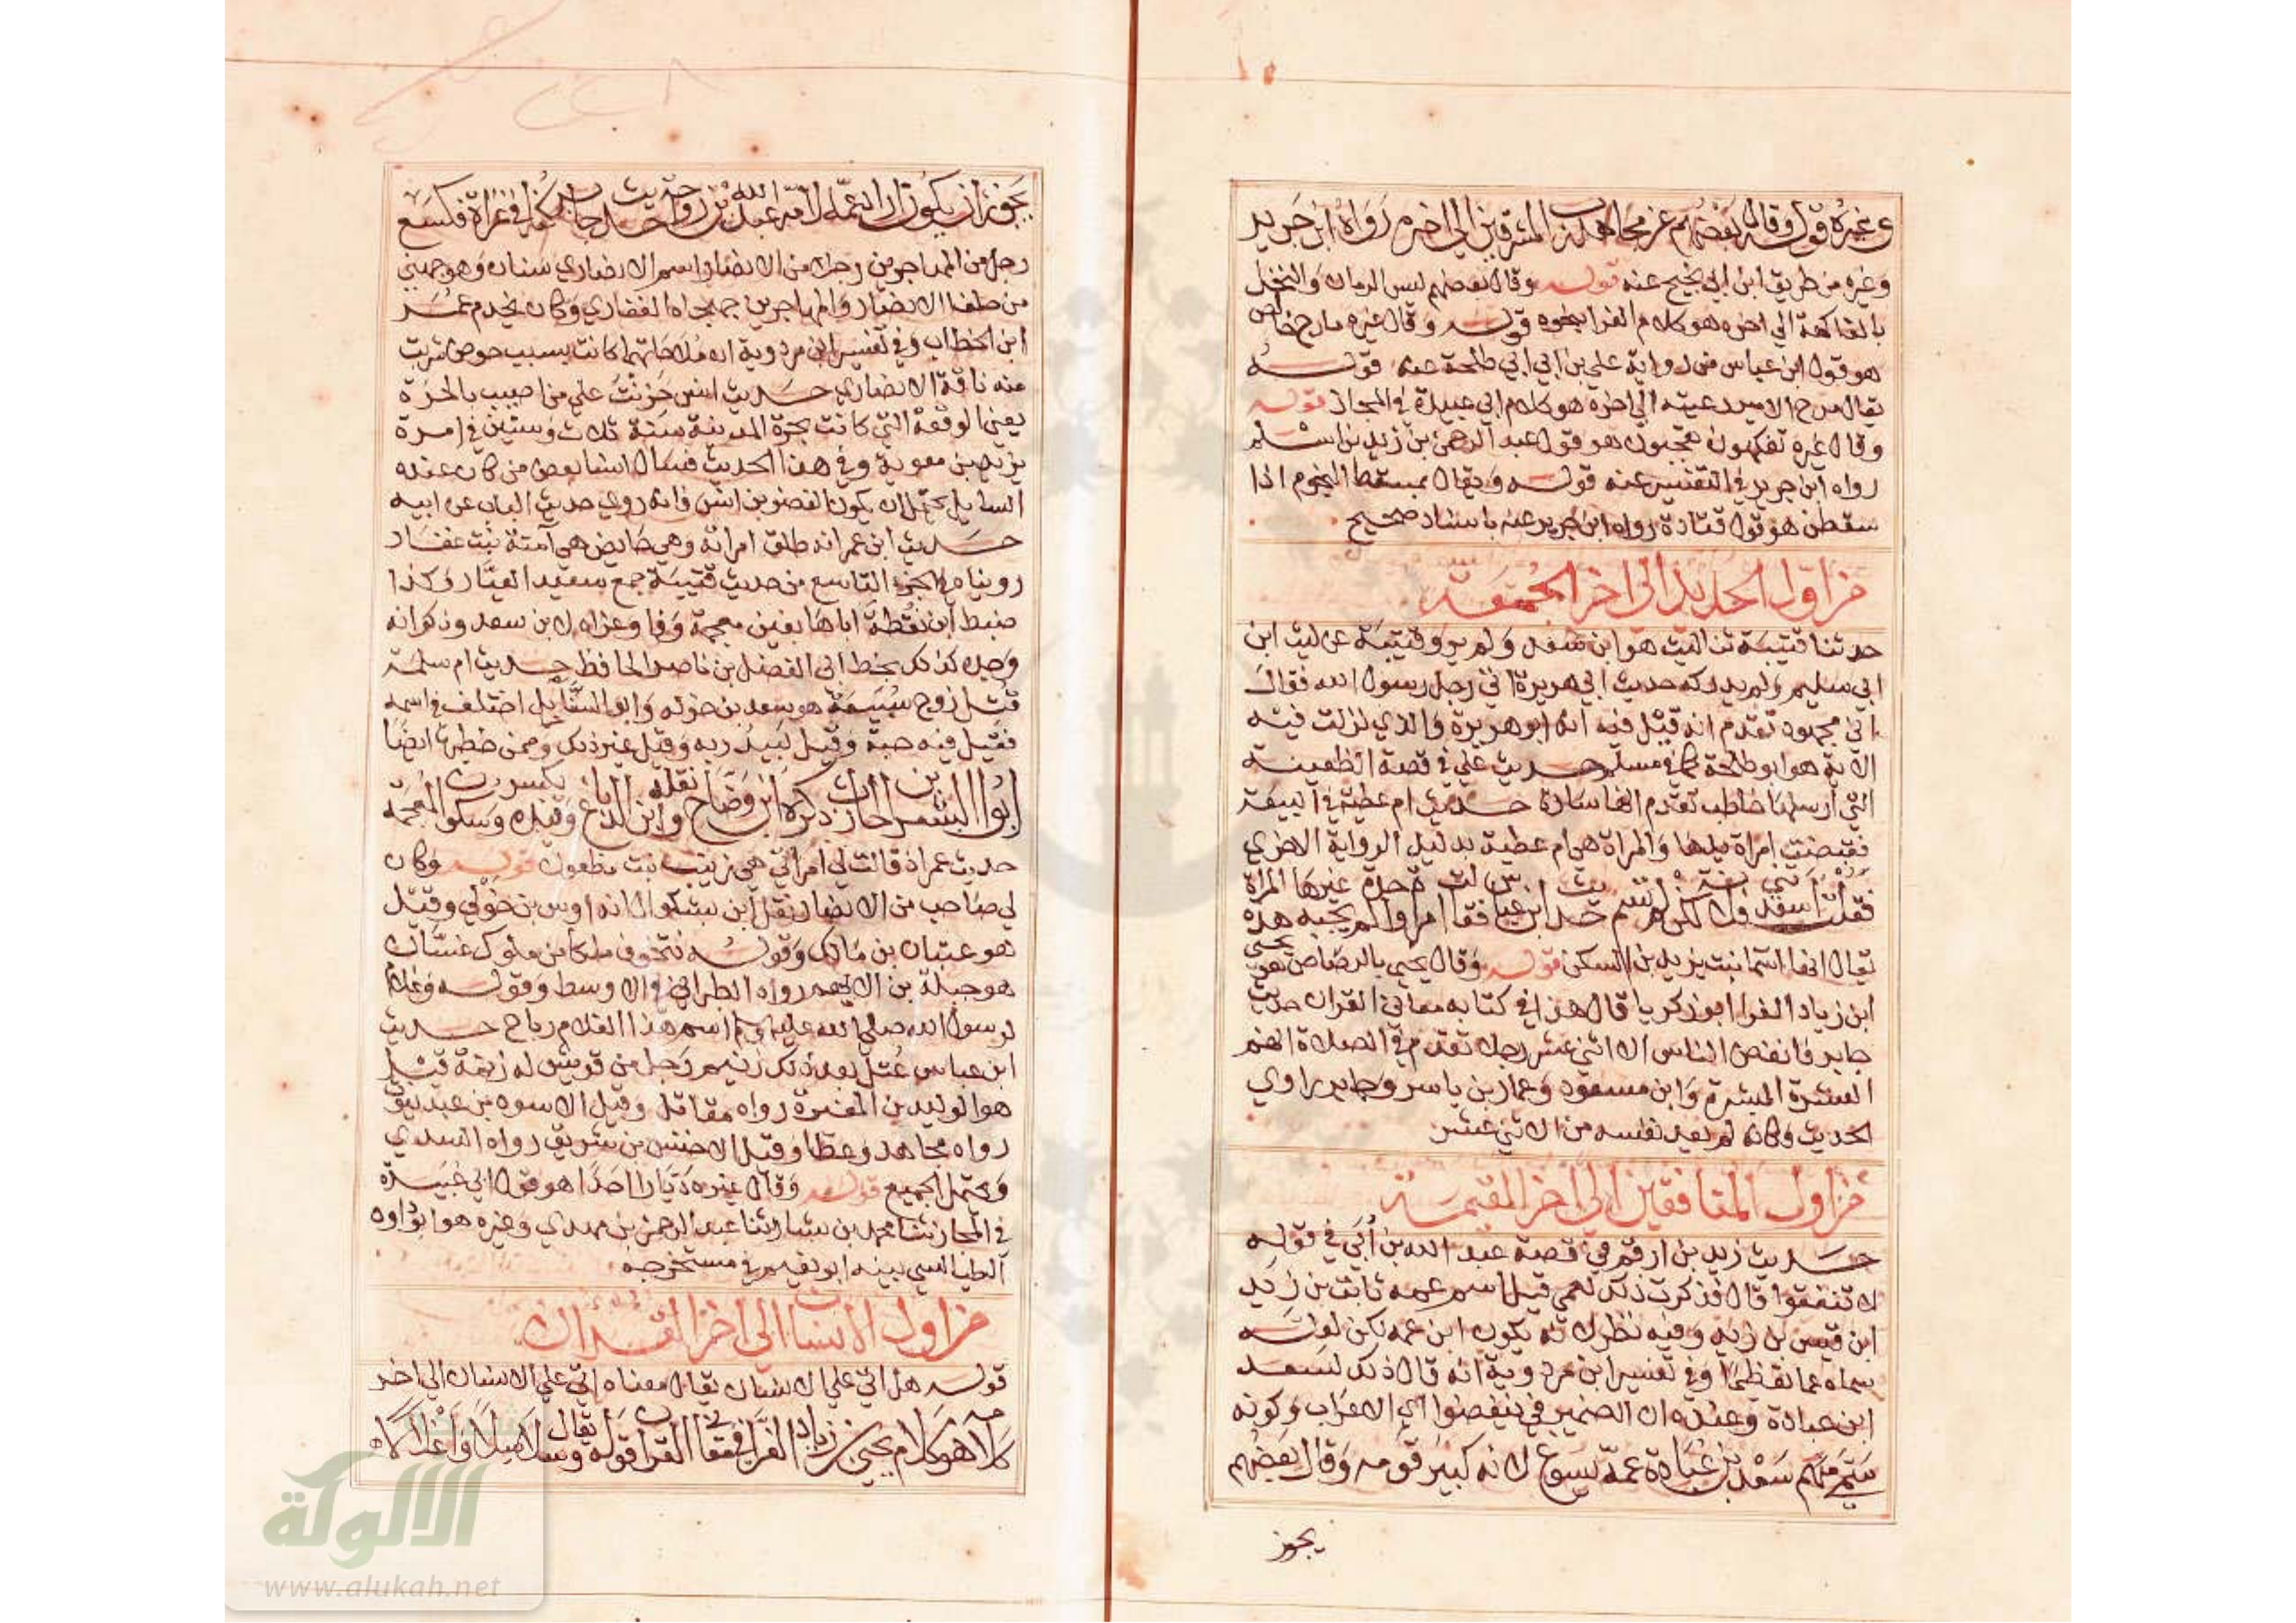 وغيره قوله وقال بعضهم عن مجاهد رب المشرقين الى اخره رواه ابن جرير
وغيره من طريق ابن ابي نجيح عنه قوله وقال بعضهم ليس الرمان والنخل
بالفاكهة الي اخره هو كلام الفرا بنحوه قوله وقال غيره مارج خالص
هو قول ابن عباس من رواية علي بن ابي ابي طلحة عنه قوله
يقال مرج الامير رعيته الي اخره هو كلام ابي عبيدة في المجاز قوله
وقال غيره تفكهون تعجبون هو قول عبد الرحمن بن زيد بن اسلم
رواه ابن جرير في التفسير عنه قوله ويقال بمسقط النجوم اذا
سقطن هو قول قتادة رواه ابن جرير عنه باسناد صحيح
من اول الحديد الى اخر الجمعة
حدثنا قتيبة ثنا ليث هو ابن سعد ولم يرو قتيبة عن ليث ابن
ابي سليم ولم يدركه حديث ابي هريرة اتى رجل رسول الله فقال
اني مجهود تقدم انه قيل فيه انه ابو هريرة والذي نزلت فيه
الاية هو ابو طلحة كما في مسلم حديث علي في قصة الظعينة
التي ارسلها حاطب تقدم انها سارة حديث ام عطية في البيعة
فقبضت امراة يدها والمراة هي ام عطية بدليل الرواية الاخري
فقالت اسعدتني فلانة لكن هر لتس حديث ابن عباس فقالت امراة واحدة لم يجبه غيرها هذه المراة
يقال انها اسما بنت يزيد بن السكن قوله وقال يحيى بالرصاص هو يحيى
ابن زياد الفرا ابو زكريا قال هذا في كتابه معاني القران حديث
جابر فانفض الناس الا اثني عشر رجلا تقدم في الصلاة انهم
العشرة المبشرة وابن مسعود وعمار بن ياسر وجابر راوي
الحديث وكانه لم يعد نفسه من الاثني عشر
من اول المنافقين الي اخر القيمة
حديث زيد بن ارقم في قصة عبد الله بن أبي في قوله
لا تنفقوا قال فذكرت ذلك لعمي قيل اسم عمه ثابت بن زيد
ابن قيس بن زيد وفيه نظر لانه يكون ابن عمه لكن لعله
سماه عما تعظيما وفي تفسير ابن مردوية انه قال ذلك لسعد
ابن عبادة وعنده ان الضمير في ينفضوا اي الاعراب وكونه
سعد بن عبادة عمه يسوغ لانه كبير قومه وقال بعضهم
يجوز
يجوز ان يكون اراد ان عمه لامه عبد الله بن رواحة حديث جابر كنا في غزاة فكسع
رجل من المهاجرين رجلا من الانصار اسم الانصاري سنان وهو جهني
من حلفا الانصار والمهاجرين جهجاه الغفاري وكان يخدم عمر
ابن الخطاب وفي تفسير ابن مردوية ان ملاحاتهما كانت بسبب حوض شربت
منه ناقة الانصاري حديث انس حزنت علي من اصيب بالحرة
يعني الوقعة التي كانت بحرة المدينة سنة ثلاث وستين في امرة
يزيد بن معوية وفي هذا الحديث فسال انسا بعض من كان عنده
السايل يحتمل ان يكون النضر بن انس فانه روي حديث الباب عن ابيه
حديث ابن عمر انه طلق امراته وهي حايض هي آمنة بنت غفار
رويناه في الجزء التاسع من حديث قتيبة جمع سعيد العيار وكذا
ضبط ابن نقطة اباها بغين معجمة وفا وعزاه لابن سعد وذكر انه
وجده كذلك بخط ابي الفضل بن ناصر الحافظ حديث ام سلمة
قتل زوج سبيعة هو سعد بن خولة وابو السنابل اختلف في اسمه
فقيل فيه حبة وقيل لبيد ربه وقيل غير ذلك وممن خطبها ايضا
ابو البشر بن الحارث ذكره ابن وضاح نقله ابن الدباغ وقيده بكسر الباء وسكون المعجمة
حديث عمر اذ قالت لي امراتي هي زينب بنت مظعون قوله وكان
لي صاحب من الانصار نقل ابن بشكوال انه اوس بن خولي وقيل
هو عتبان بن مالك وقوله نتخوف ملكا من ملوك غسان
هو جبلة بن الايهم رواه الطبراني في الاوسط وقوله وغلام
لرسول الله صلي الله عليه وسلم اسم هذا الغلام رباح حديث
ابن عباس عتل بعد ذلك زنيم رجل من قريش له زنمة قيل
هو الوليد بن المغيرة رواه مقاتل وقيل الاسود بن عبد يغوث
رواه مجاهد وعطا وقيل الاخنس بن شريق رواه السدي
ويحتمل الجميع قوله وقال غيره ديارا احدا هو قول ابي عبيدة
في المجاز ثنا محمد بن بشار ثنا عبد الرحمن بن مهدي وغيره هو ابو داود
الطيالسي بينه ابو نعيم في مستخرجه
من اول الانسان الي اخر القران
قوله هل اتى علي الانسان يقال معناه اتى علي الانسان الي اخر
كلامه هو كلام يحيى بن زياد الفرا في معاني القران قوله ويقال سلاسلا واغلالا كله
الألوكة
www.alukah.net